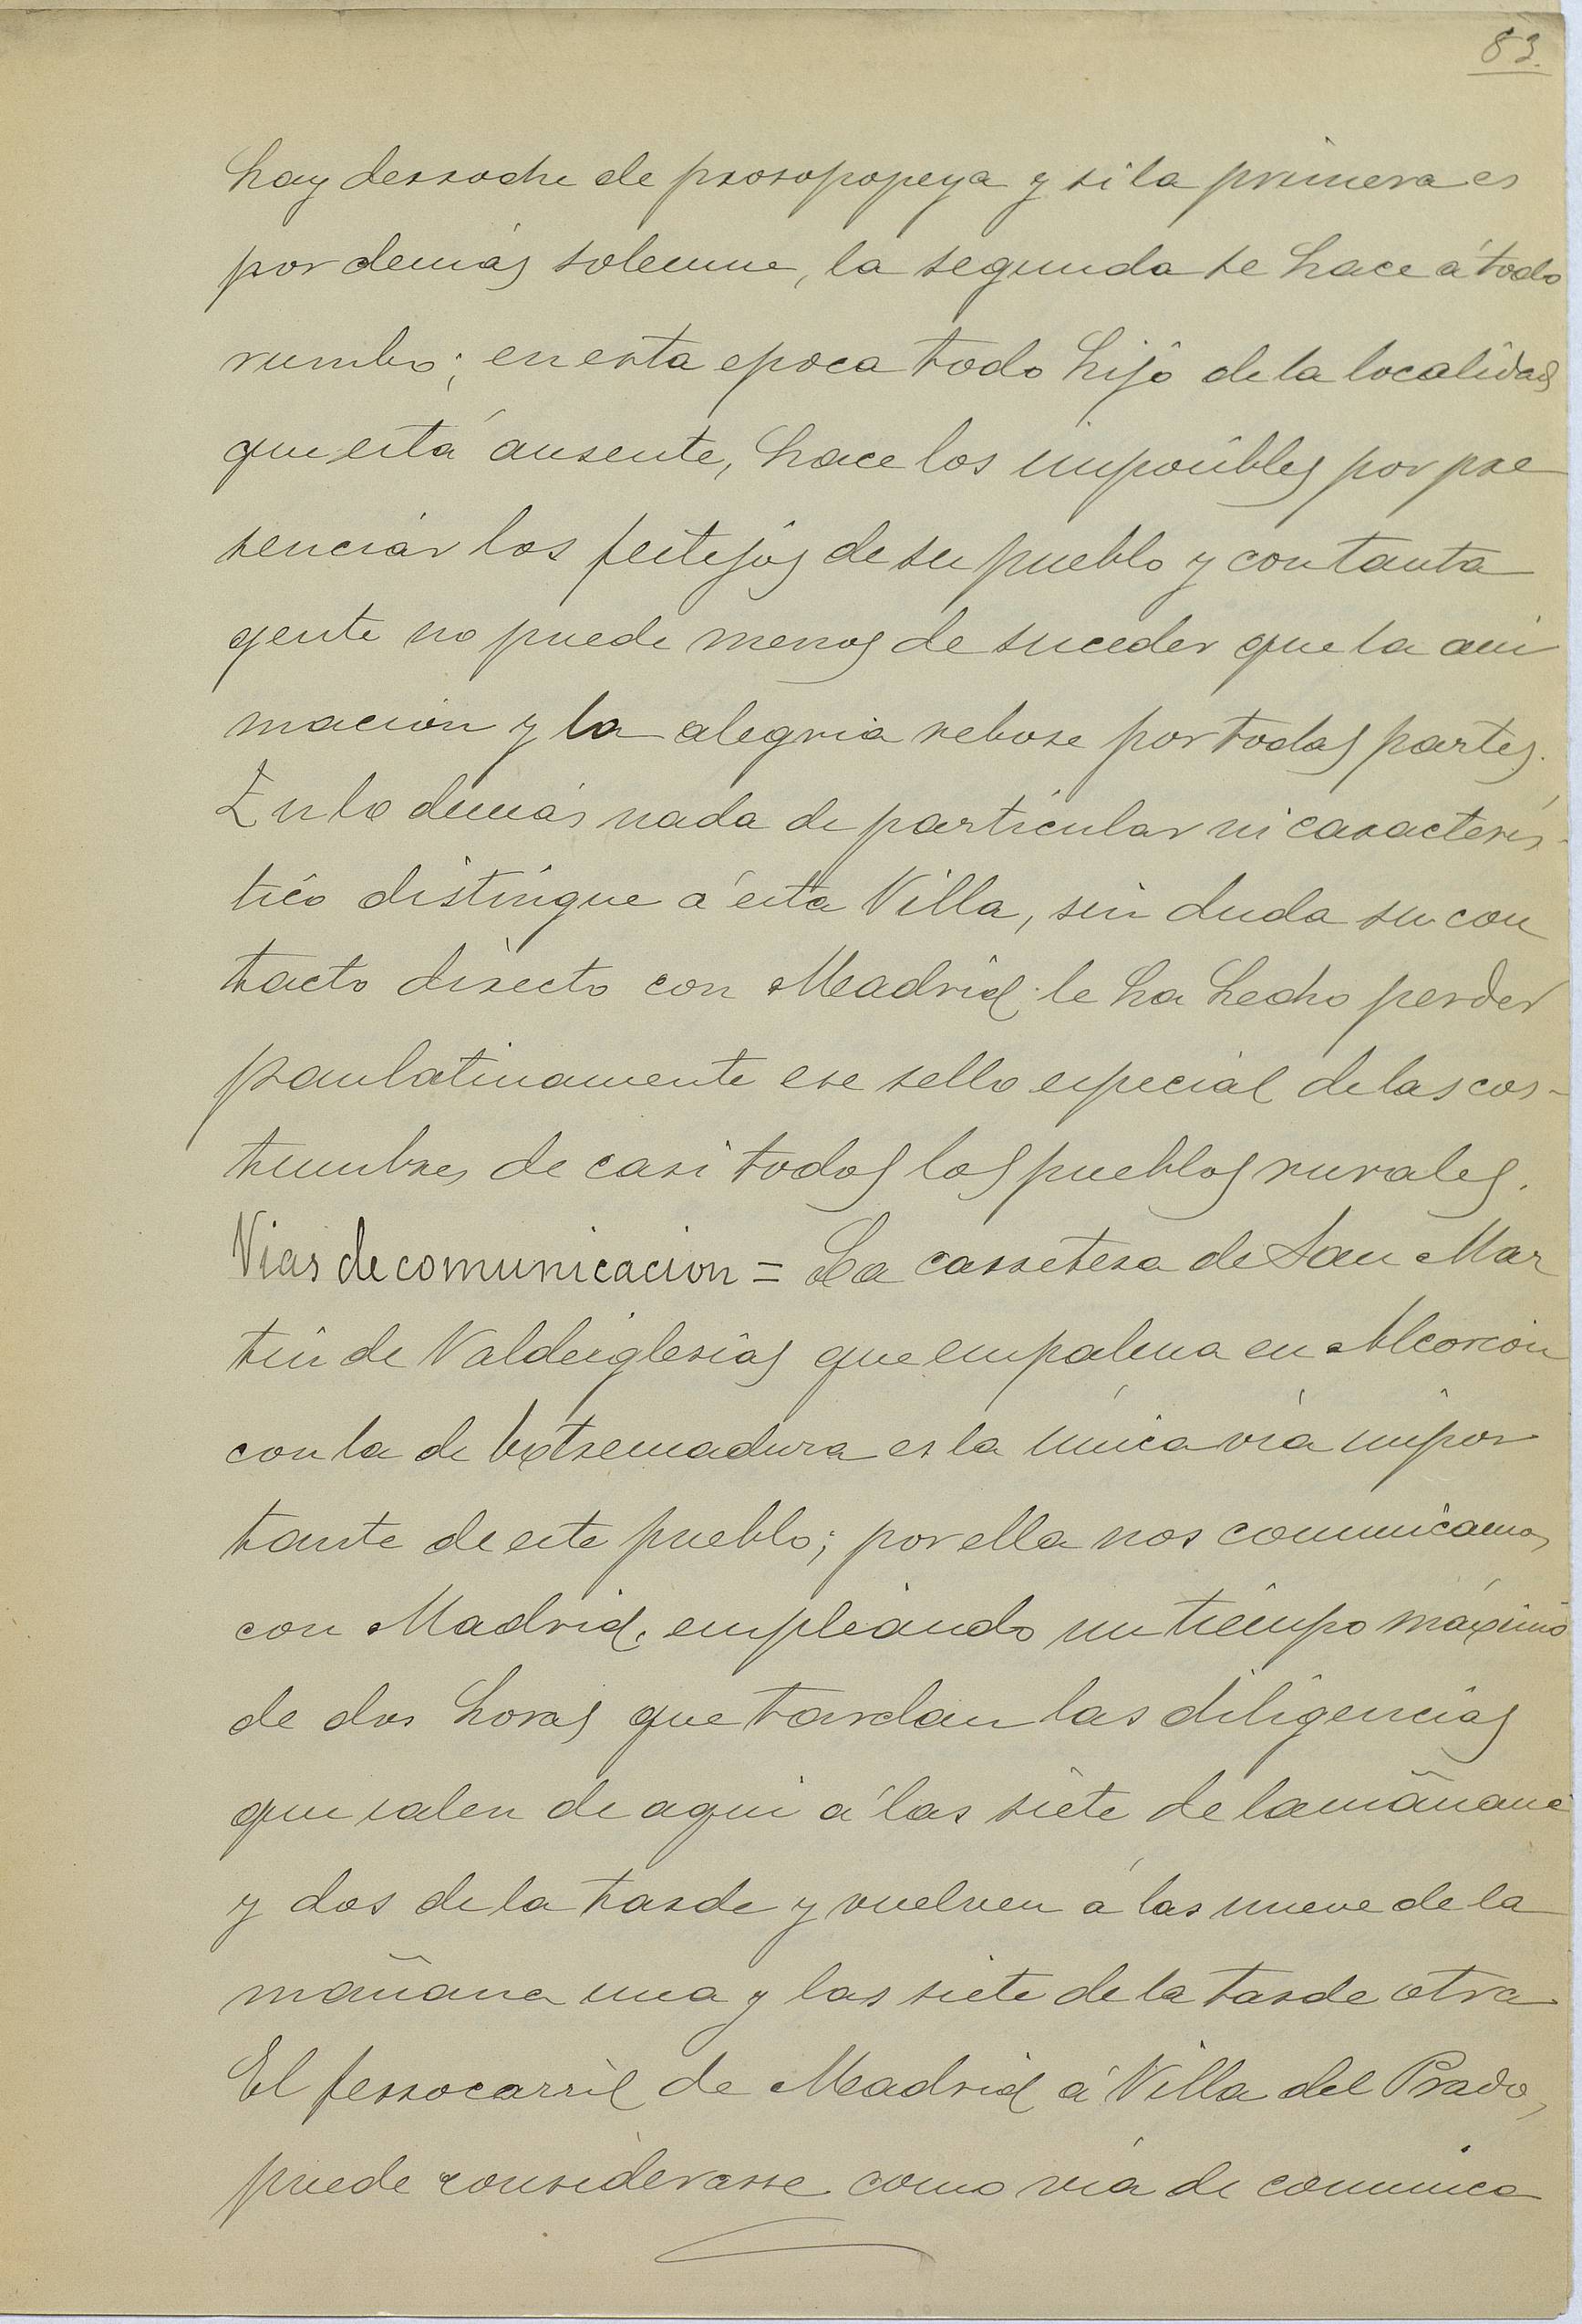 83.
hay derroche de prosopopeya y si la primera es
por demás solemne, la segunda se hace á todo
rumbo; en esta epoca todo hijo de la localidad
que está ausente, hace los imposibles por pre
senciar los festejos de su pueblo y con tanta
gente no puede menos de suceder que la ani
macion y la alegria rebose por todas partes.
En lo demás nada de particular ni caracterís-
tico distingue á esta Villa, sin duda su con
tacto directo con Madrid le ha hecho perder
paulatinamente ese sello especial de las cos-
tumbres de casi todos los pueblos rurales.
Vias de comunicacion = La carretera de San Mar
tin de Valdeiglesias que empalma en Alcorcón
con la de Extremadura es la única vía impor
tante de este pueblo; por ella nos comunicamos
con Madrid, empleando un tiempo máximo
de dos horas que tardan las diligencias
que salen de aqui á las siete de la mañana
y dos de la tarde y vuelven á las nueve de la
mañana una y las siete de la tarde otra
El ferrocarril de Madrid á Villa del Prado,
puede considerarse como vía de comunica